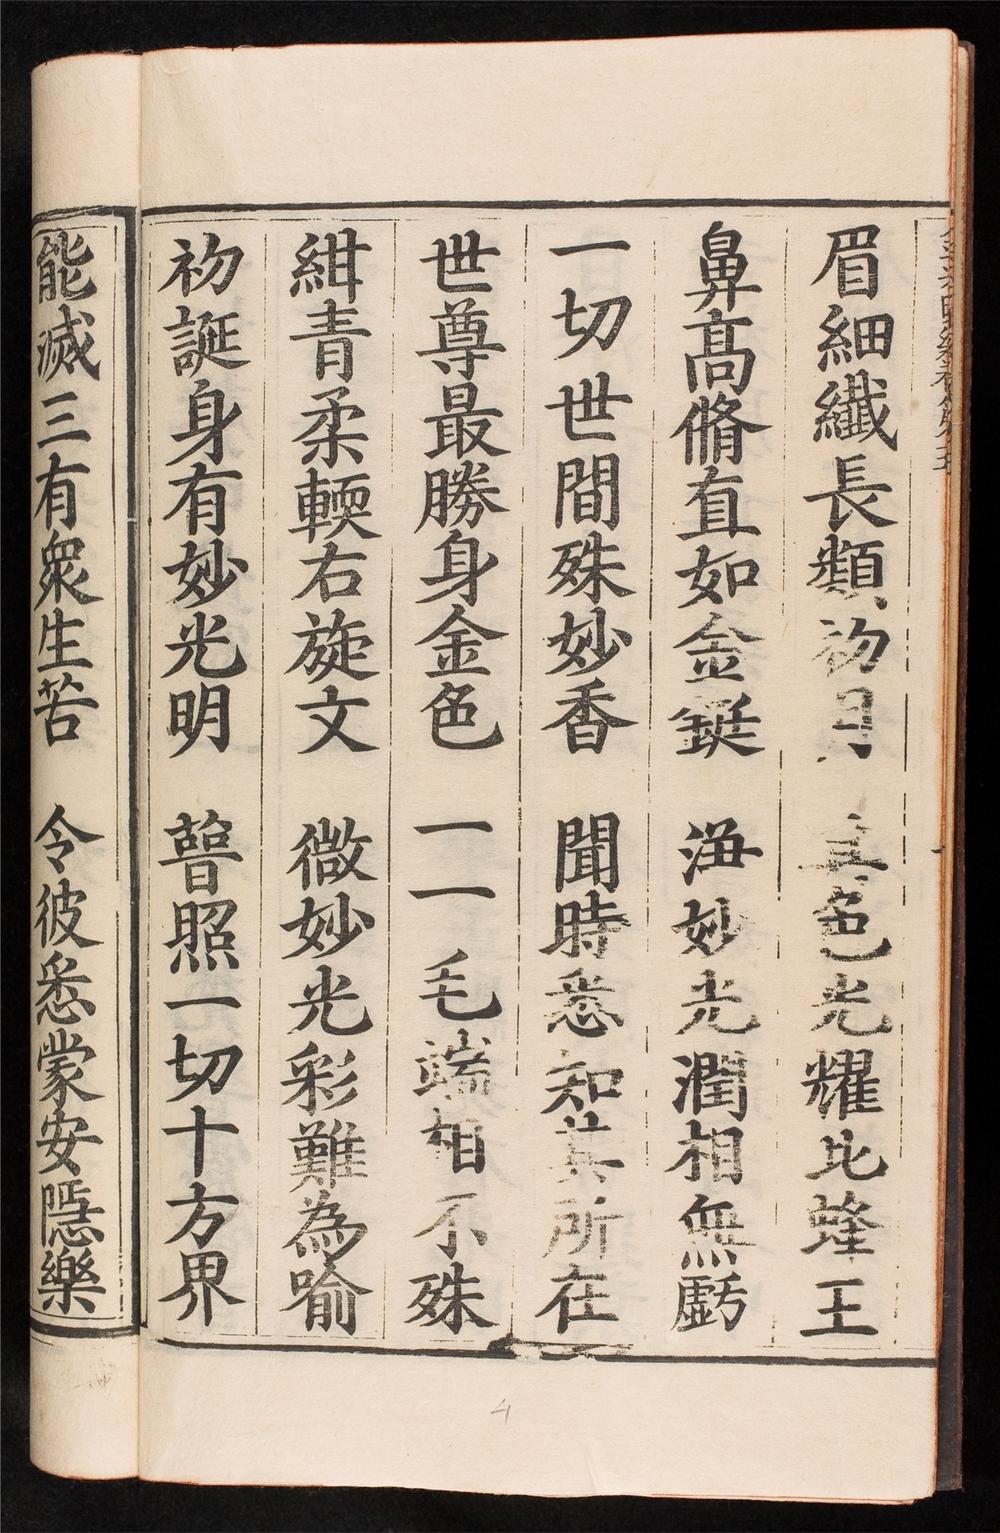 眉細纖長類初月　其色光耀比蜂王
鼻髙脩直如金鋌　淨妙光潤相無虧
一切世間殊妙香　聞時悉知其所在
世尊最勝身金色　一一毛端相不殊
紺青柔輭右旋文　微妙光彩難為喻
初誕身有妙光明　普照一切十方界
能滅三有衆生苦　令彼悉蒙安隱樂
4